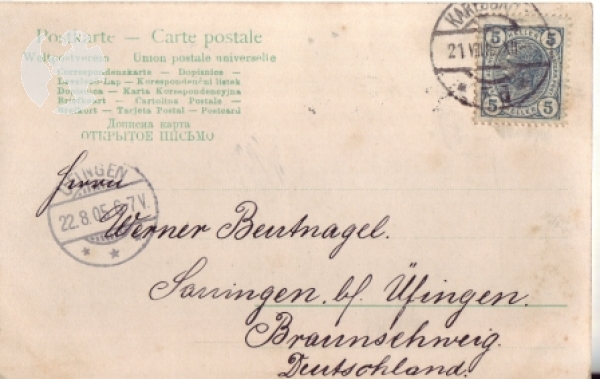 Postkarte — Carte postale
Weltpostverein — Union postale universelle
Correspondenzkarte — Dopisnice —
Levelező-Lap — Korespondenční lístek
Dopisnica — Karta Korespondencyjna
Briefkaart — Cartolina Postale —
Brefkort — Tarjeta Postal — Postcard
Дописна карта
ОТКРЫТОЕ ПИСЬМО
5 HELLER 5
5 5
21 VIII
22.8.05. 6-7V.
Herrn
Werner Beutnagel.
Sauingen b/ Üfingen.
Braunschweig.
Deutschland.